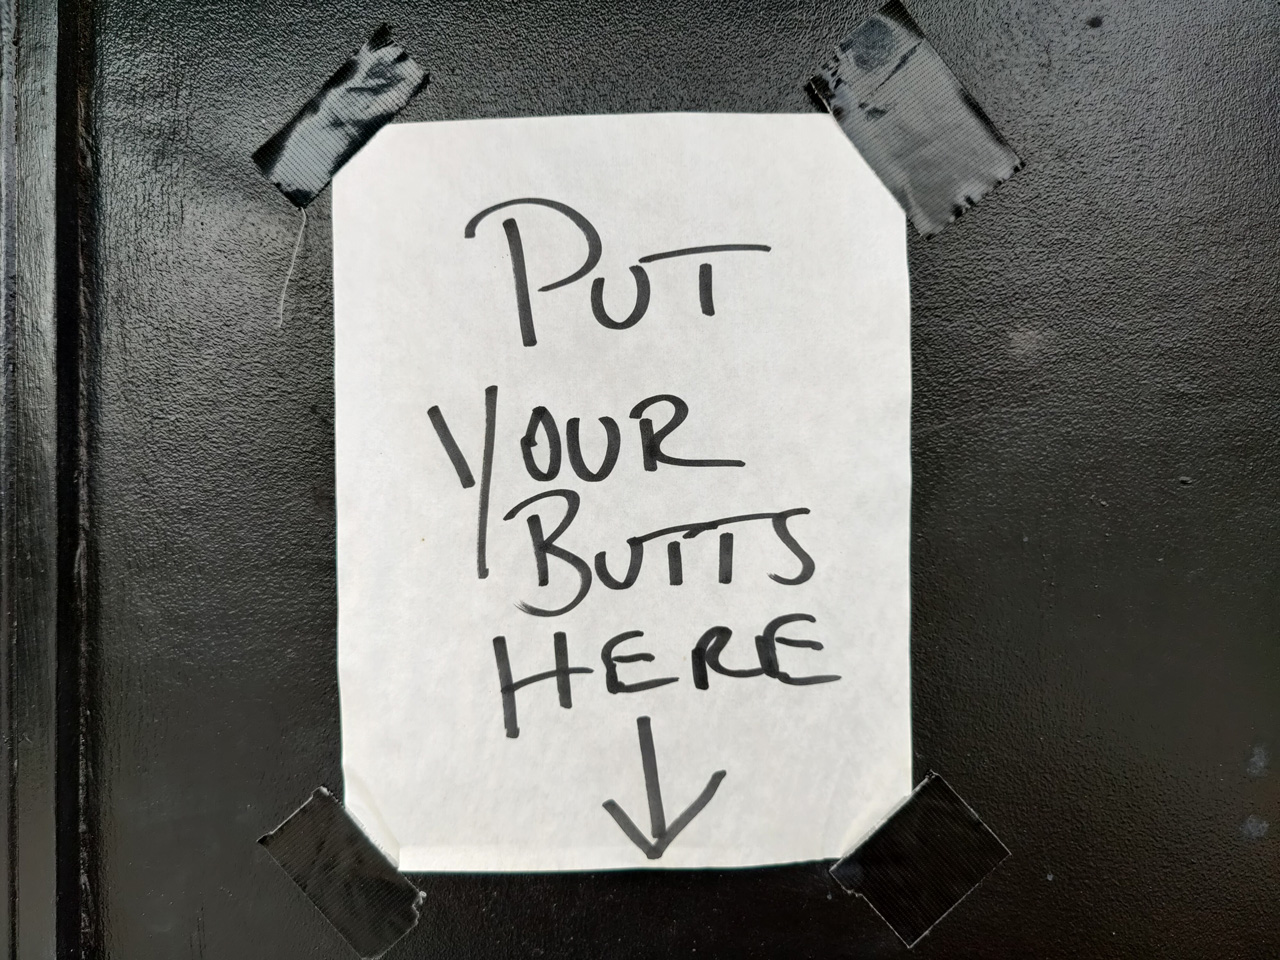 PUT
YOUR
BUTTS
HERE
↓